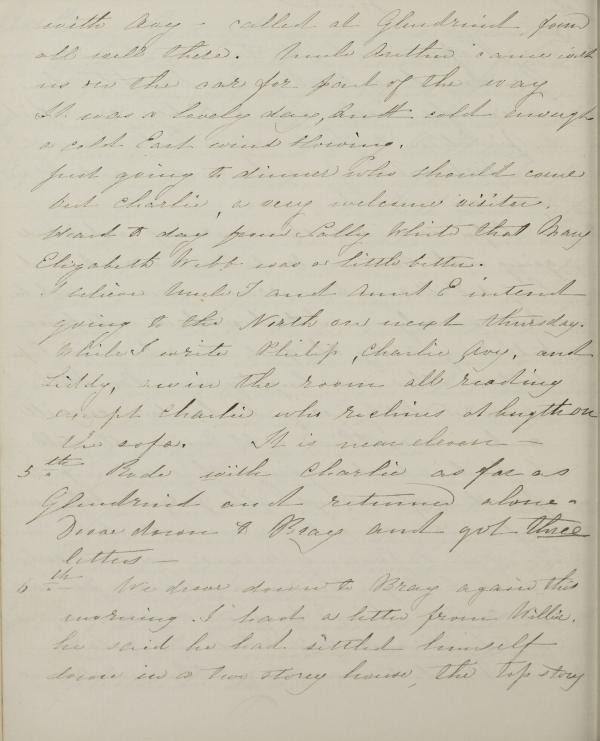 with Avy - called at Glendruid, found
all well there. Uncle Arthur came with
us on the car for part of the way
It was a lovely day, but cold enough
a cold East wind blowing.
Just going to dinner who should come
but Charlie, a very welcome visitor.
Heard to day from Sally White that Mary
Elizabeth Webb was a little better.
I believe Uncle T and Aunt E intend
going to the North on next Thursday.
While I write Philip, Charlie Avy, and
Liddy, are in the room all reading
except Charlie who reclines at length on
the sofa. It is near eleven —
5th. Rode with Charlie as far as
Glendruid and returned alone.
Drove down to Bray and got three
letters —
6th. We drove down to Bray again this
morning. I had a letter from Willie.
he said he had settled himself
down in a two storey house, the top story